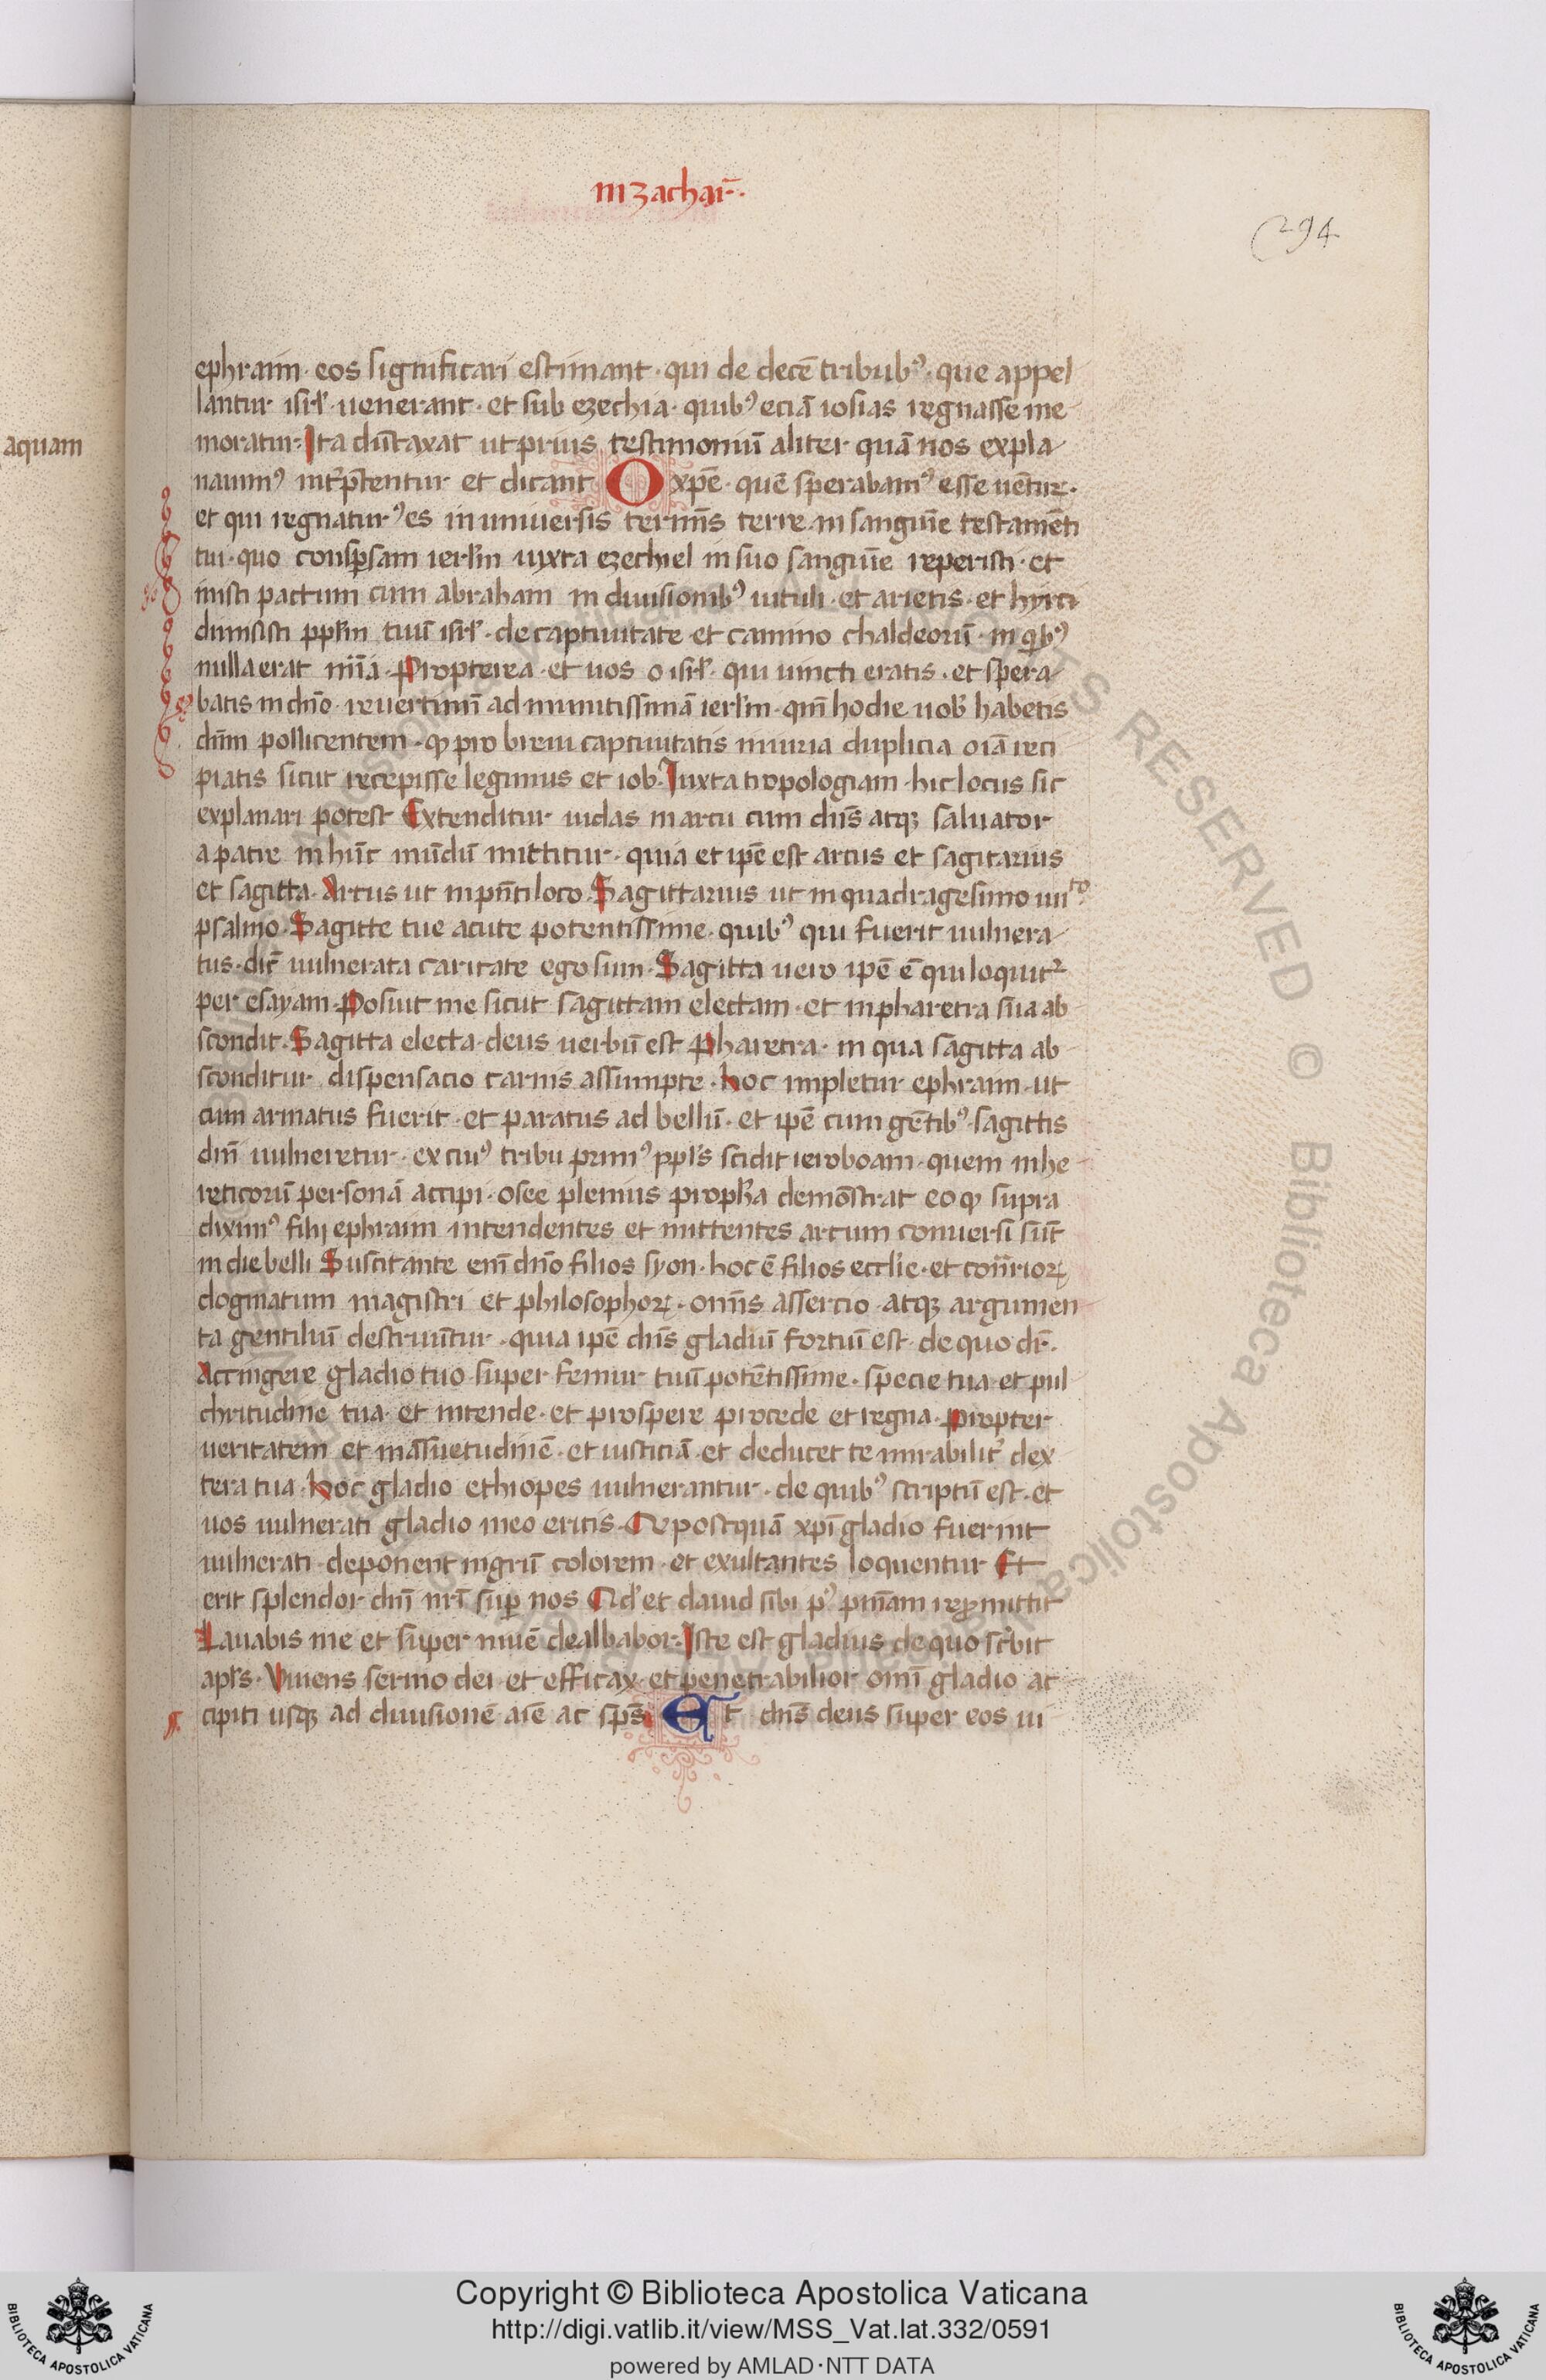 in zachar̄.
294
aquam
ephraim· eos significari estimant· qui de decē tribub⁹· que appel
lantur isrl̓· uenerant· et sub ezechia· quib⁹ eciā iosias regnasse me
moratur· Ita dūtaxat ut prius testimoniū aliter quā nos expla
nauim⁹ int̓p̄tentur et dicant· O xp̄e· quē sperabam⁹ esse uētuꝝ·
et qui regnatur⁹ es in uniuersis termīs terre in sanguīe testamēti
tui· quo conspsam ierl̓m iuxta ezechiel in suo sanguīe reperisti· et
inisti pactum cum abraham in diuisionib⁹ uituli· et arietis· et hyrci
dimisisti pplm̄ tuū isrl̓· de captiuitate et camino chaldeorū· in qb⁹
nulla erat mīa· Propterea· et uos o isrl̓· qui uincti eratis· et spera
batis in dn̄o· reuertimī ad munitissimā ierl̓m· qm̄ hodie uob̓ habetis
dn̄m pollicentem· ꝙ pro breui captiuitatis iniuria duplicia oīa reci
piatis sicut recepisse legimus et iob· Iuxta tropologiam· hic locus sic
explanari potest Extenditur iudas in arcu cum dn̄s atqꝫ saluator
a patre in hūc mūdū mittitur· quia et ip̄e est arcus et sagitarius
et sagitta· Arcus ut in pn̄ti loco· Sagittarius ut in quadragesimo iiii^to
psalmo· Sagitte tue acute potentissime· quib⁹ qui fuerit uulnera
tus· dic̄ uulnerata caritate ego sum· Sagitta uero ip̄e ē qui loquit^r
per esayam· Posuit me sicut sagittam electam· et in pharetra sua ab
scondit· Sagitta electa· deus uerbū est Pharetra· in qua sagitta ab
sconditur dispensacio carnis assumpte· hoc impletur ephraim· ut
cum armatus fuerit· et paratus ad bellū· et ip̄e cum gētib⁹· sagittis
dn̄i uulneretur· ex cui⁹ tribu prim⁹ ppl̓s scidit ieroboam· quem in he
reticorū personā accipi· osee plenius proph̄a demōstrat eoꝙ supra
dixim⁹ filij ephraim intendentes et mittentes arcum conuersi sūt
in die belli Suscitante enī dn̄o filios syon· hoc ē filios eccl̓ie· et cōn̄rioꝝ
dogmatum magistri et philosophoꝝ· om̄s assercio· atqꝫ argumen
ta gentiliū destruūtur· quia ip̄e dn̄s gladiū fortiū est· de quo dr̄·
Accingere gladio tuo super femur tuū potētissime· specie tua et pul
chritudine tua· et intende· et prospere procede et regna· Propter
ueritatem et māsuetudinē· et iusticiā· et deducet te mirabilit̓ dex
tera tua· hoc gladio ethiopes uulnerantur· de quib⁹ scriptū est· et
uos uulnerati gladio meo eritis· Qd̓ postquā xpī gladio fuerint
uulnerati· deponent nigrū colorem· et exultantes loquentur Et
erit splendor dn̄i nr̄i sup nos Qd̓ et dauid sibi p⁹ pnīam repromittit
Lauabis me et super niuē dealbabor· Iste est gladius de quo sc̓bit
apl̓s· Viuens sermo dei et efficax· et penetrabilior omī gladio ac
cipiti usqꝫ ad diuisionē aīe ac sp̄s Et dn̄s deus super eos ui
Copyright © Biblioteca Apostolica Vaticana
http://digi.vatlib.it/view/MSS_Vat.lat.332/0591
powered by AMLAD·NTT DATA